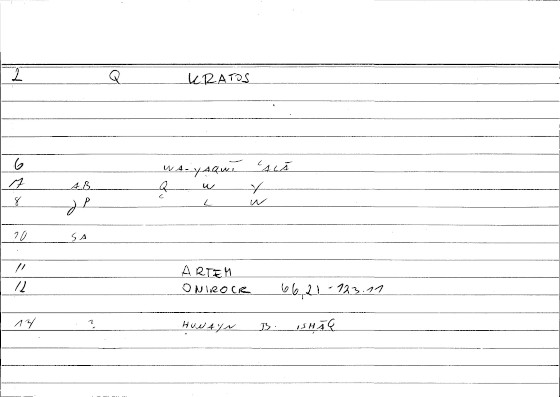 2 Q KRATOS
6 WA-YAQWĪ ʿALĀ
7 AB Q W Y
8 JP ʿ L W
10 SA
11 ARTEM
12 ONIROCR 66,21-123.11
14 ? ḤUNAYN B. ISḤĀQ